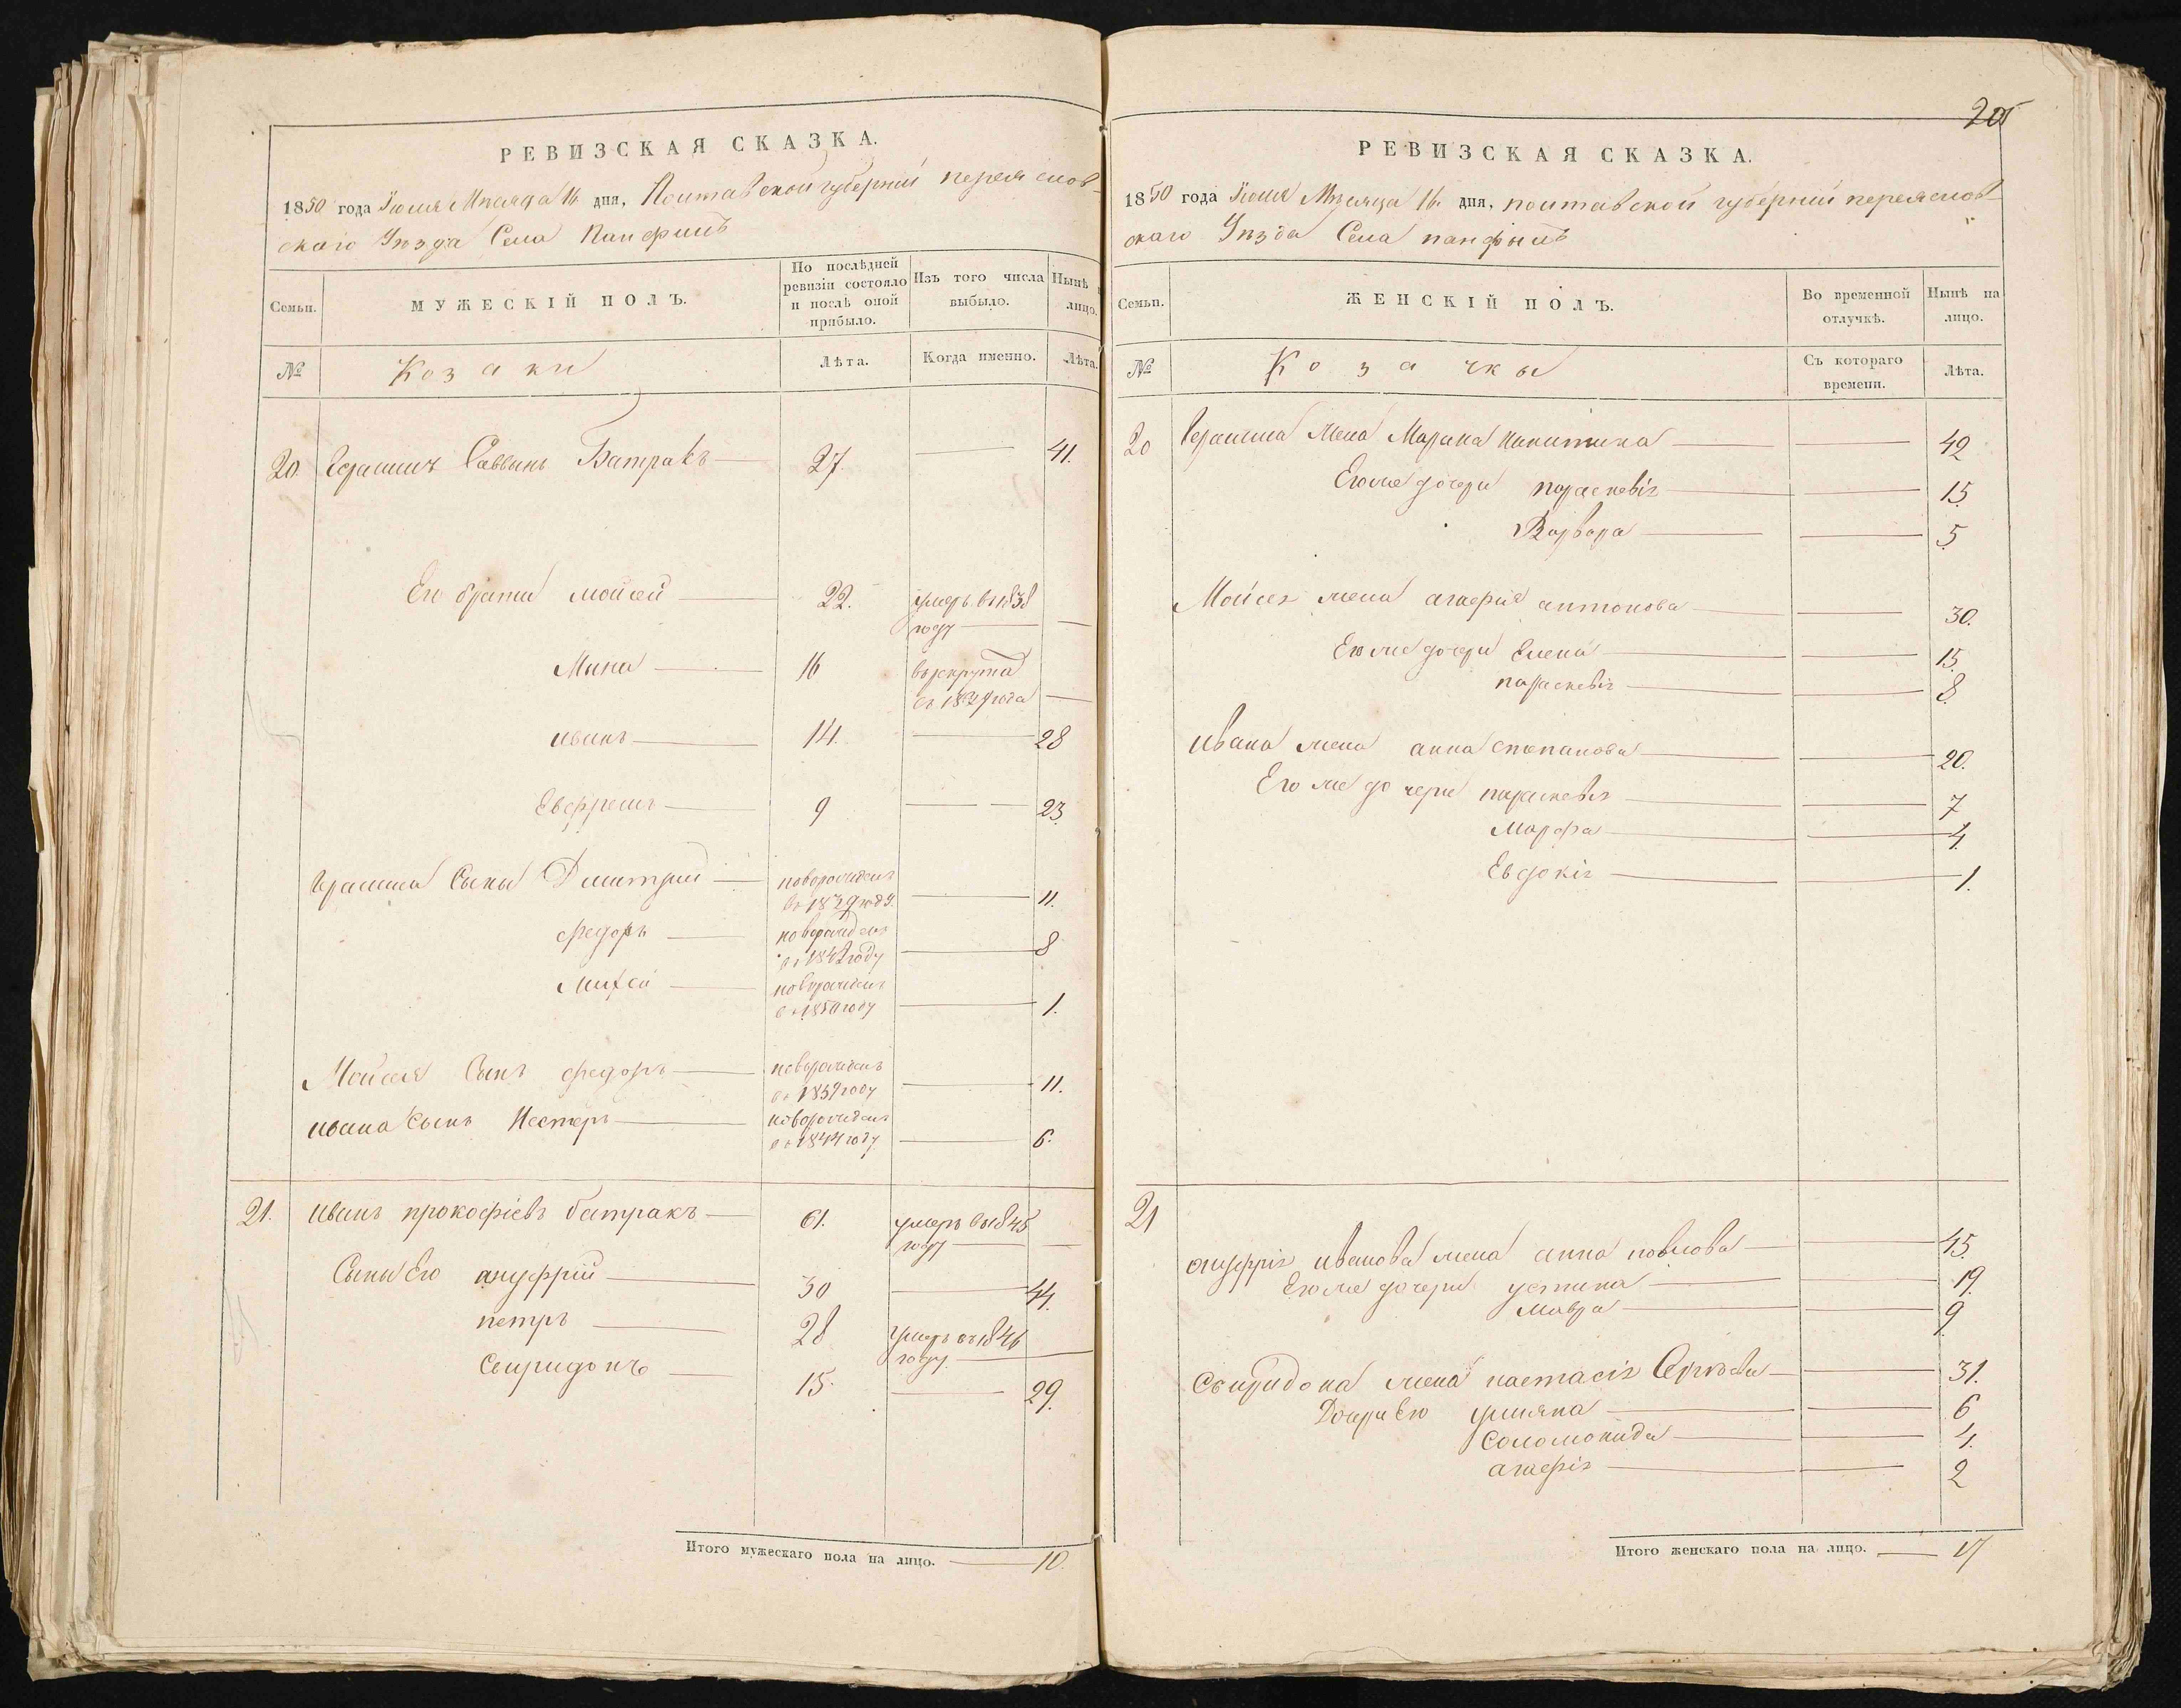 РЕВИЗСКАЯ СКАЗКА.
1850 года Іюля Мѣсяца 16 дня, Полтавской губерніи переяслов-
скаго Уѣзда Села Панфилъ
Семьи.
МУЖЕСКІЙ ПОЛЪ.
По послѣдней ревизіи состояло и послѣ оной прибыло.
Изъ того числа выбыло.
Нынѣ лицо.
№
Козаки
Лѣта.
Когда именно.
Лѣта.
20. Герасимъ Саввинъ Батракъ 27. 41.
Его братья мойсей 22. умеръ в 1838
году
Мина 16 въ рекрута
съ 1834 года
иванъ 14. 28
Евфремъ 9 23.
Герасима Сыны Дмитрій новорожденъ
въ 1839 году. 11.
федоръ новорожденъ
въ 1842 году 8
новорожденъ
въ 1850 году 1.
Мойсея Сынъ федоръ новорожденъ
въ 1839 году 11.
ивана Сынъ Нестеръ новорожденъ
въ 1844 году 6.
21. иванъ прокофіевъ батракъ 61. умеръ в 1845
году
Сыны Его ануфрій 30 44.
петръ 28 умеръ въ 1846
году.
Свиридонъ 15. 29.
Итого мужескаго пола на лицо. 10.
205
РЕВИЗСКАЯ СКАЗКА.
1850 года Іюля Мѣсяца 16. дня, полтавской губерніи переяслов-
скаго Уѣзда Села панфилъ
Семьи.
ЖЕНСКІЙ ПОЛЪ.
Во временной отлучкѣ.
Нынѣ на лицо.
№
Козачкы
Съ котораго времени.
Лѣта.
20 Герасима жена Марина Никитина 42
Его же дочери параскевія 15
Варвара 5
Мойсея жена агафія антонова 30.
Его же дочери Елена 15.
параскевія 8.
ивана жена анна степанова 20.
Его же дочери параскевія 7
Марфа 4.
Евдокія 1.
21
ануфрія иванова жена анна павлова 45.
Его же дочери устина 19.
Мавра 9
Свиридона жена настасія 31.
Дочери Его уліяна 6
Соломонида 4.
агафія 2
Итого женскаго пола на лицо. 17